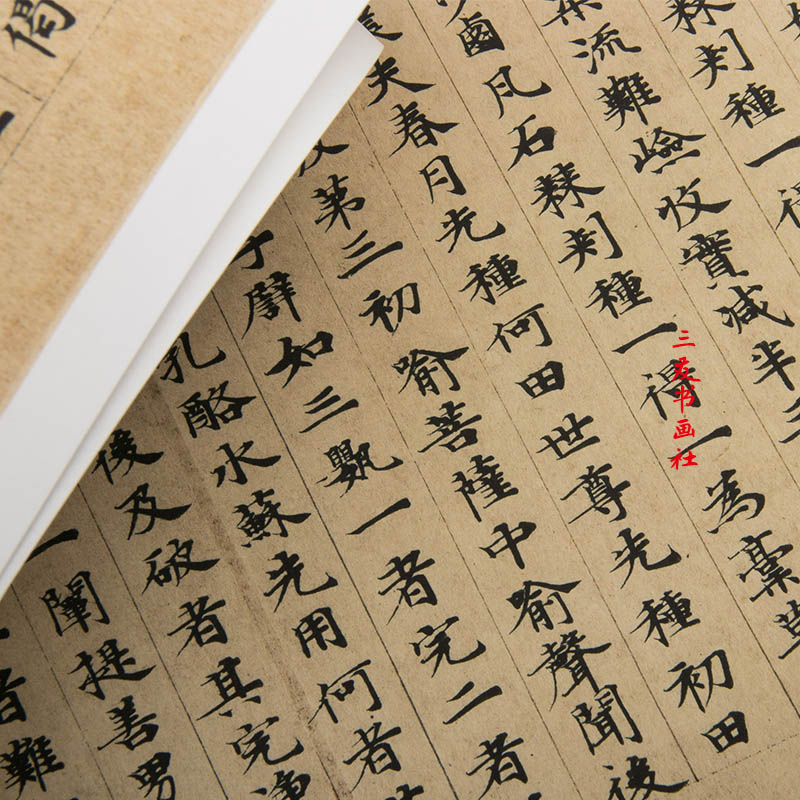 棘刾種一得
流難嶮收實減半三
鹵凡石棘刾種一得一為稾草
夫春月先種何田世尊先種初田
及第三初喻菩薩中喻聲聞後
子譬如三器一者完二者
乳酪水蘇先用何者
後及破者其完淨
一闡提善男
者難
偈
三 书画社